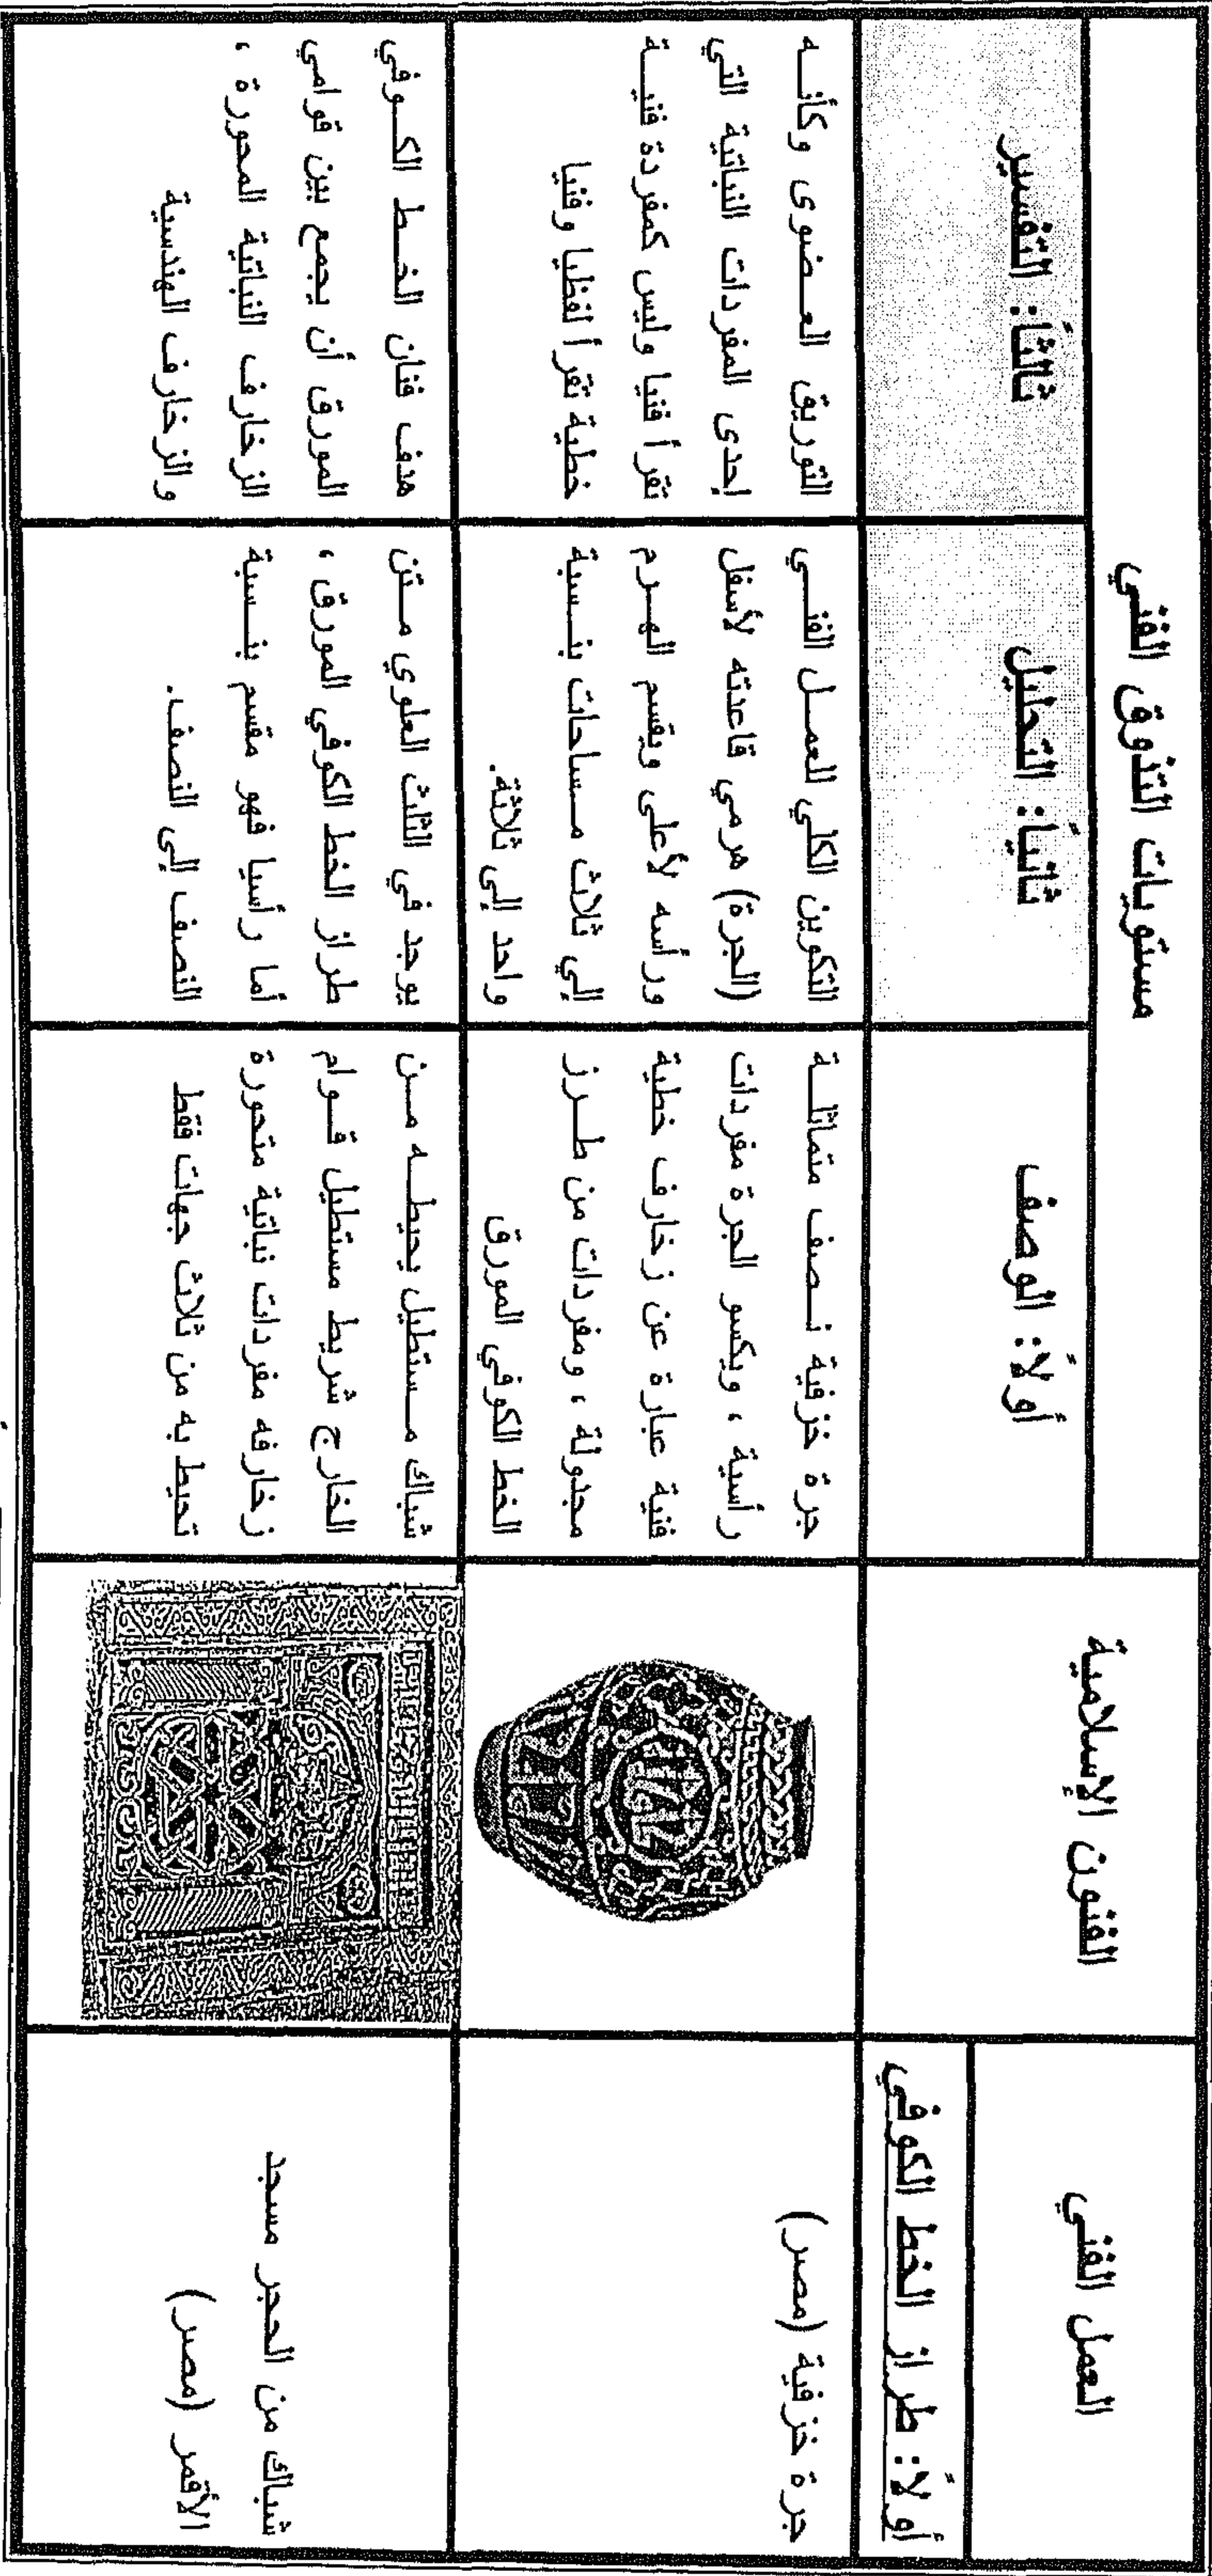 العمل الفني
الفنون الإسلامية
مستويات التذوق الفني
أولاً: الوصف
ثانياً: التحليل
ثالثاً: التفسير
أولاً: طراز الخط الكوفي
جرة خزفية (مصر)
جرة خزفية نصف متماثلة
رأسية ، ويكسو الجرة مفردات
فنية عبارة عن زخارف خطية
مجدولة ، ومفردات من طرز
الخط الكوفي المورق
التكوين الكلي للعمل الفني
(الجرة) هرمي قاعدته لأسفل
ورأسه لأعلى ويقسم الهرم
إلي ثلاث مساحات بنسبة
واحد إلى ثلاثة.
التوريق العضوى وكأنه
إحدى المفردات النباتية التي
تقرأ فنيا وليس كمفردة فنية
خطية تقرأ لفظيا وفنيا
شباك من الحجر مسجد
الأقمر (مصر)
شباك مستطيل يحيطه من
الخارج شريط مستطيل قوام
زخارفه مفردات نباتية متحورة
تحيط به من ثلاث جهات فقط
يوجد في الثلث العلوي متن
طراز الخط الكوفي المورق ،
أما رأسيا فهو مقسم بنسبة
النصف إلى النصف.
هدف فنان الخط الكوفي
المورق أن يجمع بين قوامي
الزخارف النباتية المحورة ،
والزخارف الهندسية